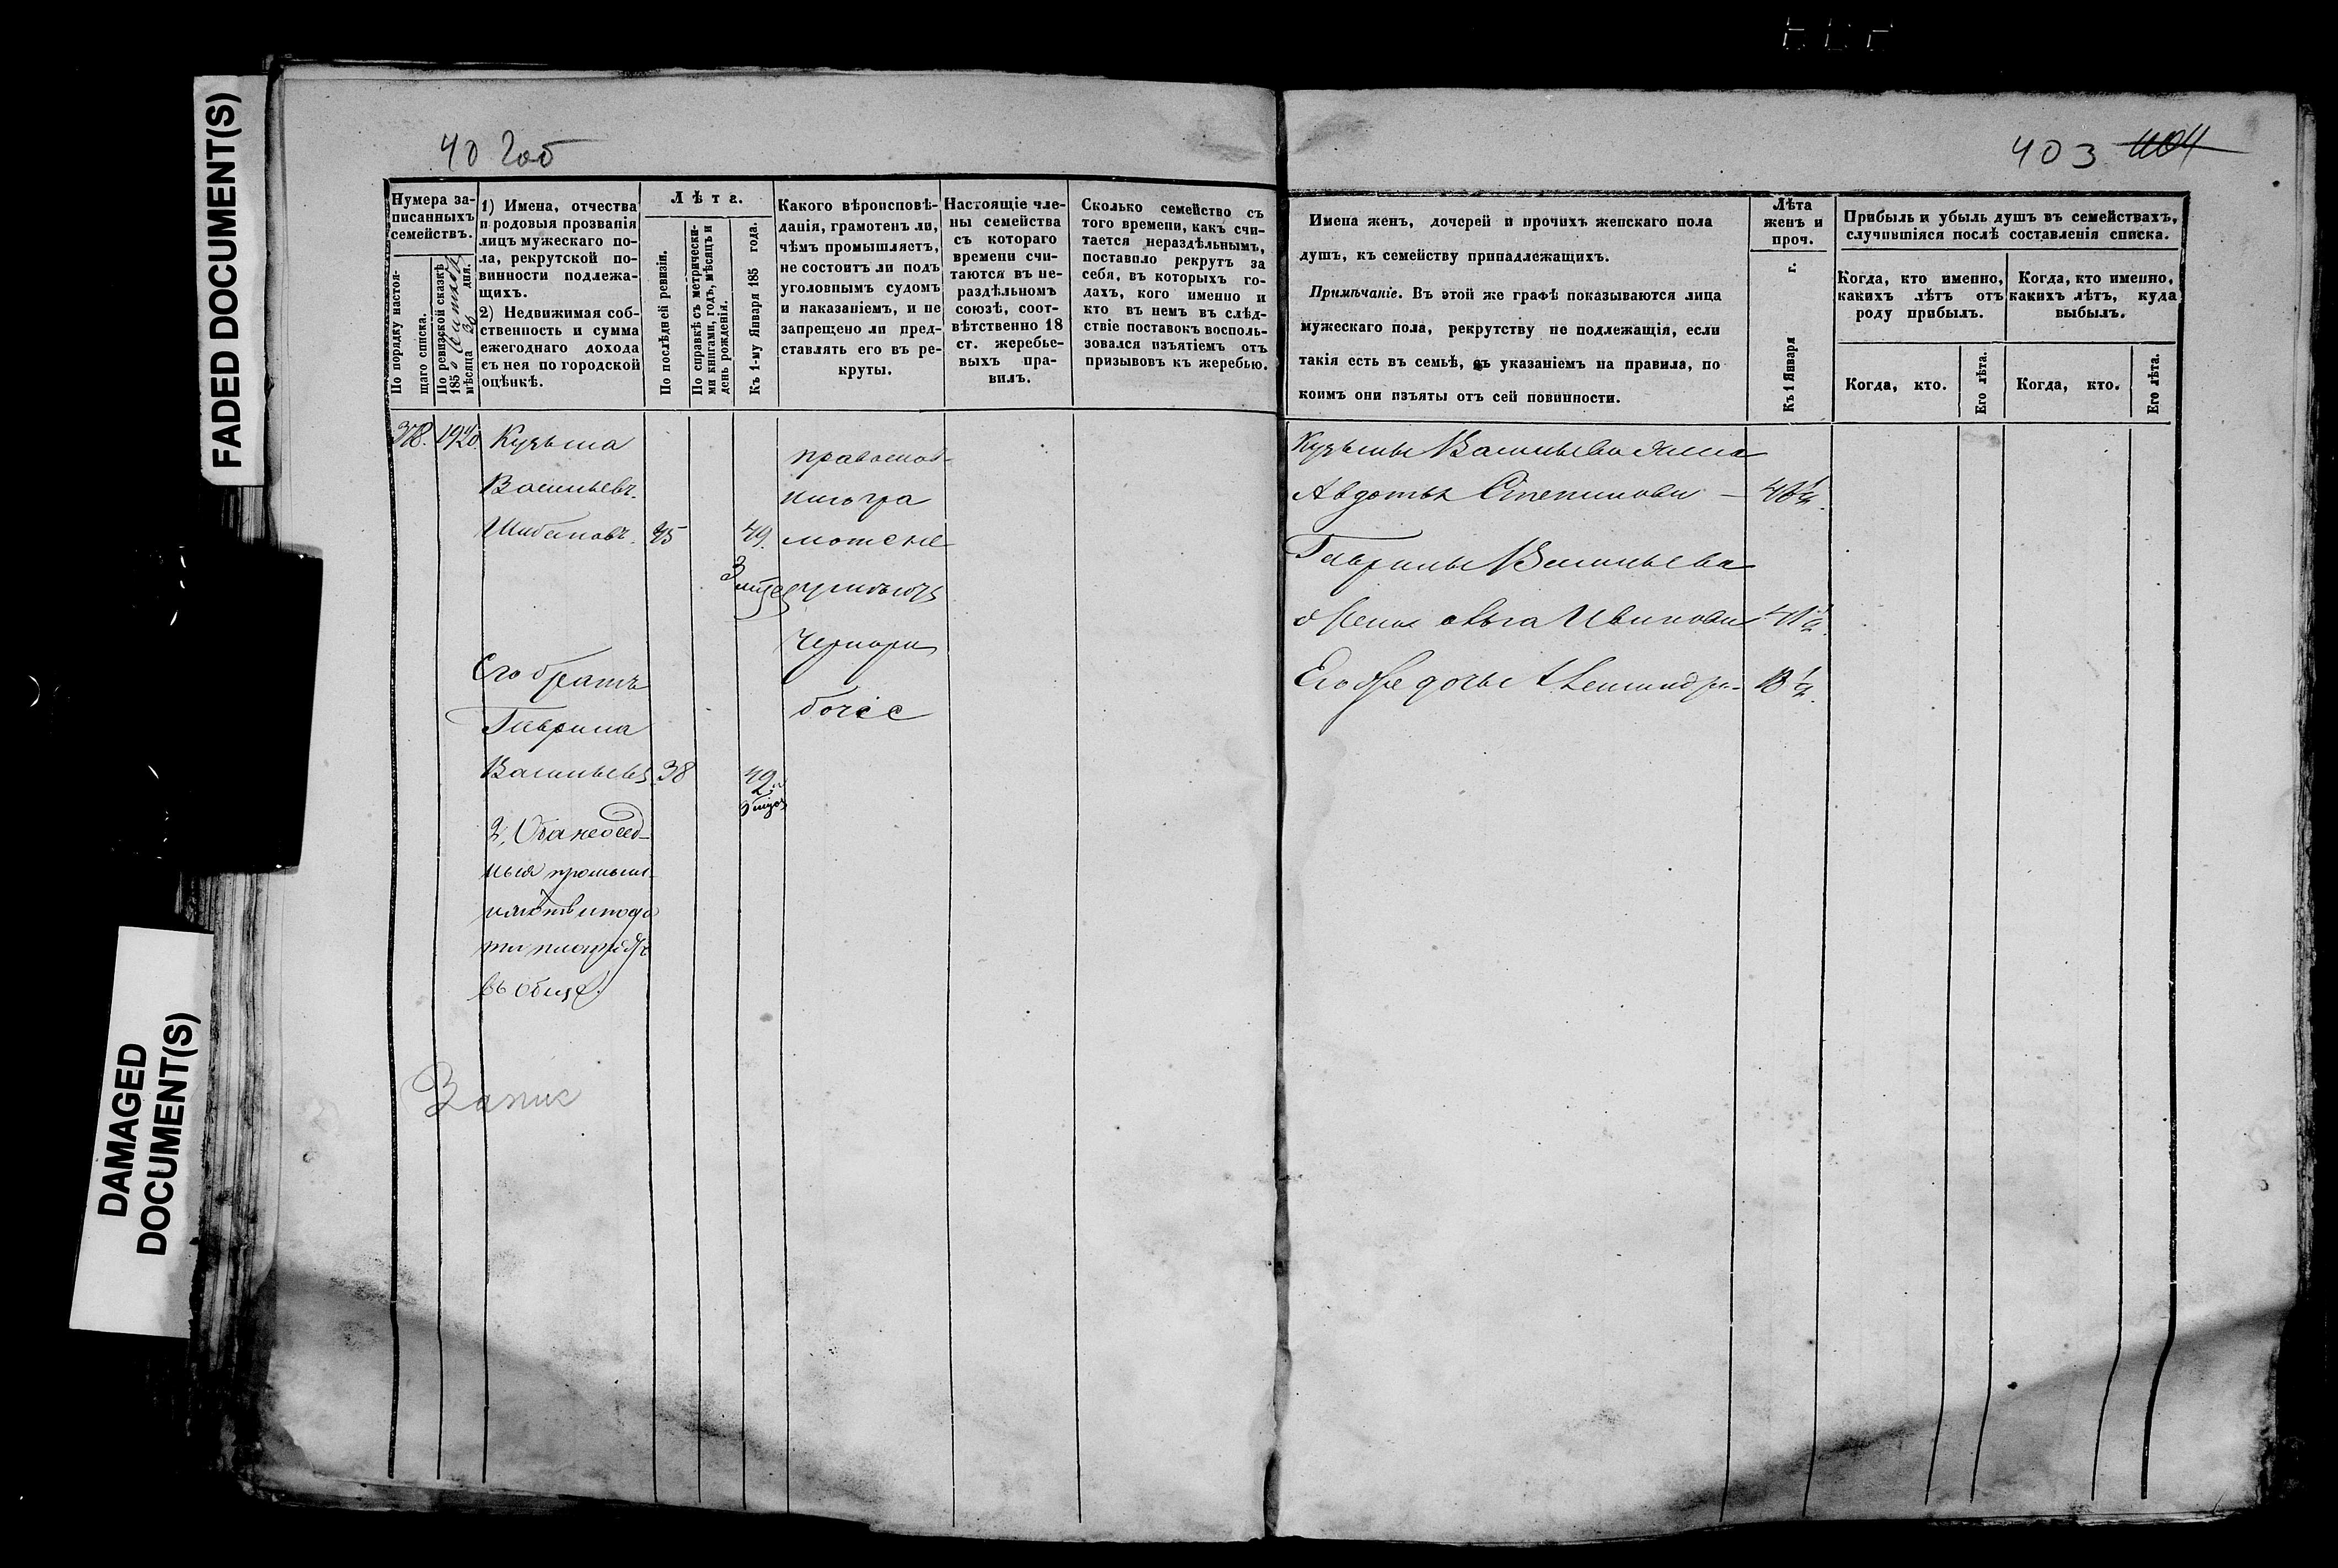 FADED DOCUMENT(S)
DAMAGED
DOCUMENT(S)
402об
Нумера за-
писанныхъ
семействъ.
По порядку настоя-
щаго списка.
По ревизской сказкѣ
185
мѣсяца 30 дня.
1) Имена, отчества
и родовыя прозванія
лицъ мужескаго по-
ла, рекрутской по-
винности подлежа-
щихъ.
2) Недвижимая соб-
ственность и сумма
ежегоднаго дохода
съ нея по городской
оцѣнкѣ.
Лѣта.
По послѣдней ревизіи.
По справкѣ съ метрически-
ми книгами, годъ, мѣсяцъ и
день рожденія.
Къ 1-му Января 185 года.
Какого вѣроисповѣ-
данія, грамотенъ ли,
чѣмъ промышляетъ,
не состоитъ ли подъ
уголовнымъ судомъ
и наказаніемъ, и не
запрещено ли пред-
ставлять его въ ре-
круты.
Настоящіе чле-
ны семейства
съ котораго
времени счи-
таются въ не-
раздѣльномъ
союзѣ, соот-
вѣтственно 18
ст. жеребье-
выхъ пра-
вилъ.
Сколько семейство съ
того времени, какъ счи-
тается нераздѣльнымъ,
поставило рекрутъ за
себя, въ которыхъ го-
дахъ, кого именно и
кто въ немъ въ слѣд-
ствіе поставокъ восполь-
зовался изъятіемъ отъ
призывовъ къ жеребью.
378. 1920. Кузьма
Васильевъ
Шибановъ. 45 49.
Его братъ
Гаврила
Васильевъ 38 42
2, Оба
въ обще.
православ-
ные гра
моте не
умѣютъ
черпора
бочіе
Запис
403 404
Имена женъ, дочерей и прочихъ женскаго пола
душъ, къ семейству принадлежащихъ.
Примѣчаніе. Въ этой же графѣ показываются лица
мужескаго пола, рекрутству не подлежащія, если
такія есть въ семьѣ, съ указаніемъ на правила, по
коимъ они изъяты отъ сей повинности.
Лѣта
женъ и
проч.
Къ 1 Января г.
Прибыль и убыль душъ въ семействахъ,
случившіяся послѣ составленія списка.
Когда, кто именно,
какихъ лѣтъ отъ
роду прибылъ.
Когда, кто именно,
какихъ лѣтъ, куда
выбылъ.
Когда, кто.
Его лѣта.
Когда, кто.
Его лѣта.
Кузьмы Васильева жена
Авдотья Степанова —
Гаврилы Васильева
жена Ивановна
Его же дочь Александра